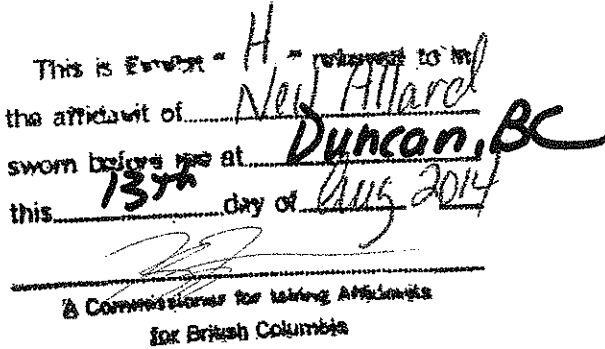 This is Exhibit " H " referred to in
the affidavit of Neil Allard
sworn before me at Duncan, BC
this 13th day of Aug 2014
A Commissioner for taking Affidavits
for British Columbia